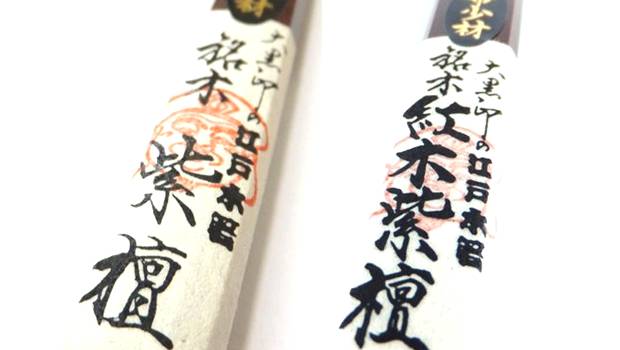 材
大黒印の江戸木箸
銘木
紫檀
少材
大黒印の江戸木箸
銘木
紅木紫檀